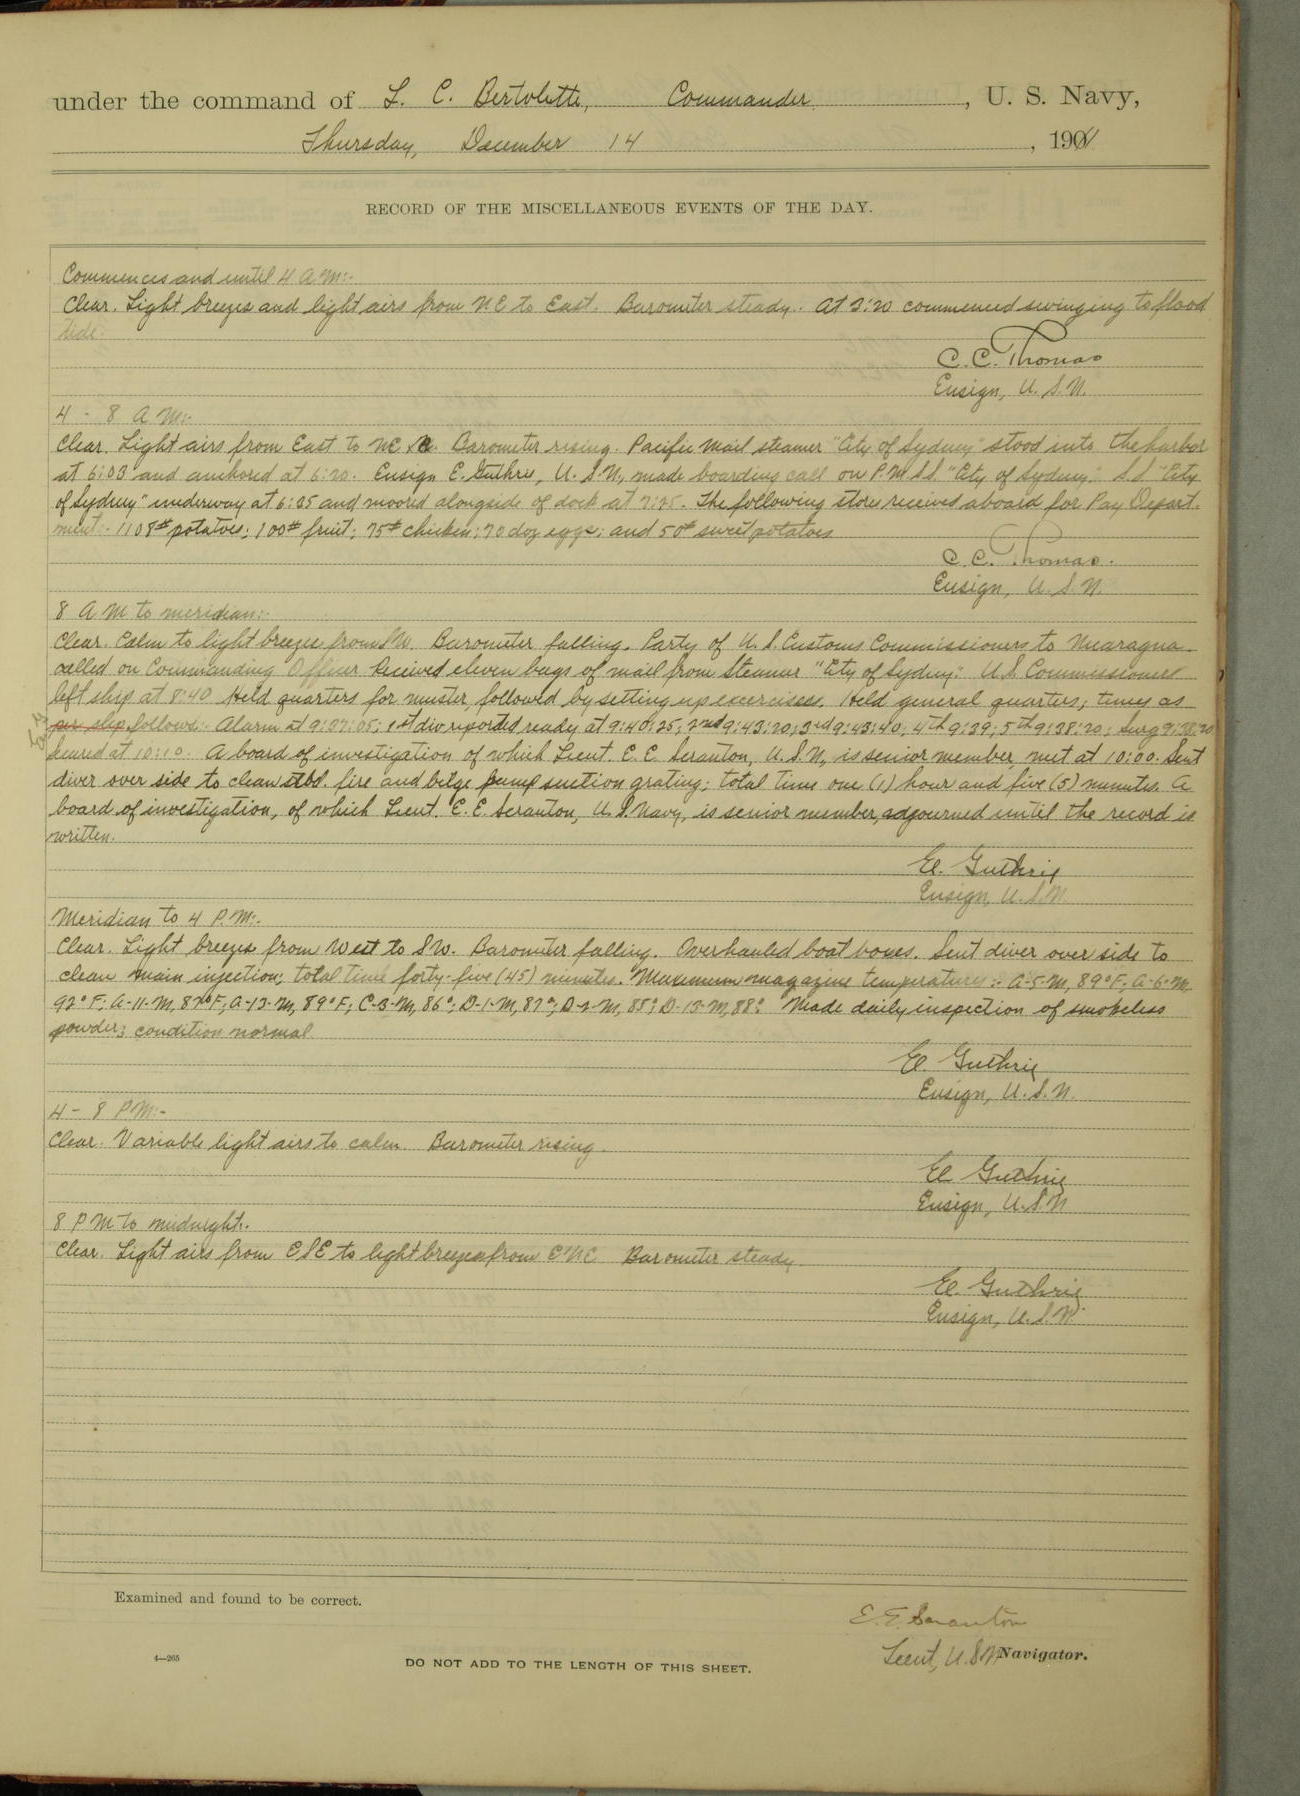 under the command of L. C. Bertolette, Commander, U. S. Navy,
Thursday, December 14, 1911
RECORD OF THE MISCELLANEOUS EVENTS OF THE DAY.
Commences and until 4 A.M:-
Clear. Light breezes and light airs from NE to East. Barometer steady. At 3:20 commenced swinging to flood
tide.
C. C. Thomas
Ensign, U. S. N.
4 - 8 A M:-
Clear. Light airs from East to NE. Barometer rising. Pacific Mail steamer "City of Sydney" stood into the harbor
at 6:03 and anchored at 6:20. Ensign E. Guthrie, U. S. N., made boarding call on P.M.S.S. "City of Sydney." S.S "City
of Sydney" underway at 6:35 and moored alongside of dock at 7:25. The following stores received aboard for Pay Depart-
ment:- 1108# potatoes; 100# fruit; 75# chicken; 70 doz eggs; and 50# sweet potatoes
C. C. Thomas.
Ensign, U. S. N.
8 A M to meridian:-
Clear. Calm to light breeze from SW. Barometer falling. Party of U. S. Customs Commissioners to Nicaragua
called on Commanding Officer Received eleven bags of mail from Steamer "City of Sydney." U.S. Commissioners
left ship at 8:40 Held quarters for muster, followed by setting up exercises. Held general quarters; times as
per slip follows:- Alarm at 9:37:05; 1st div reported ready at 9:40:25; 2nd 9:43:20; 3rd 9:43:40; 4th 9:39; 5th 9:38:20; surg 9:38:20
Secured at 10:10. A board of investigation of which Lieut. E. E. Scranton, U. S. N., is senior member, met at 10:00. Sent
diver over side to clean stbd. fire and bilge pump suction grating; total time one (1) hour and five (5) minutes. A
board of investigation, of which Lieut. E. E. Scranton, U. S. Navy, is senior member, adjourned until the record is
written.
E. Guthrie
Ensign, U. S. N.
Meridian to 4 P.M:-
Clear. Light breezes from West to SW. Barometer falling. Overhauled boat boxes. Sent diver over side to
clean main injection; total time forty-five (45) minutes. Maximum magazine temperatures:- A-5-M, 89°F; A-6-M,
92°F; A-11-M, 87°F; A-13-M, 89°F; C-3-M, 86°; D-1-M, 87°; D-2-M, 85°; D-13-M, 88°. Made daily inspection of smokeless
powder; condition normal
E. Guthrie
Ensign, U. S. N.
4 - 8 P M:-
Clear. Variable light airs to calm. Barometer rising.
E. Guthrie
Ensign, U. S. N
8 P M to midnight:-
Clear. Light airs from ESE to light breezes from E'NE Barometer steady.
E. Guthrie
Ensign, U. S. N.
Examined and found to be correct.
E. E. Scranton
Lieut, U. S. N Navigator.
4—265
DO NOT ADD TO THE LENGTH OF THIS SHEET.